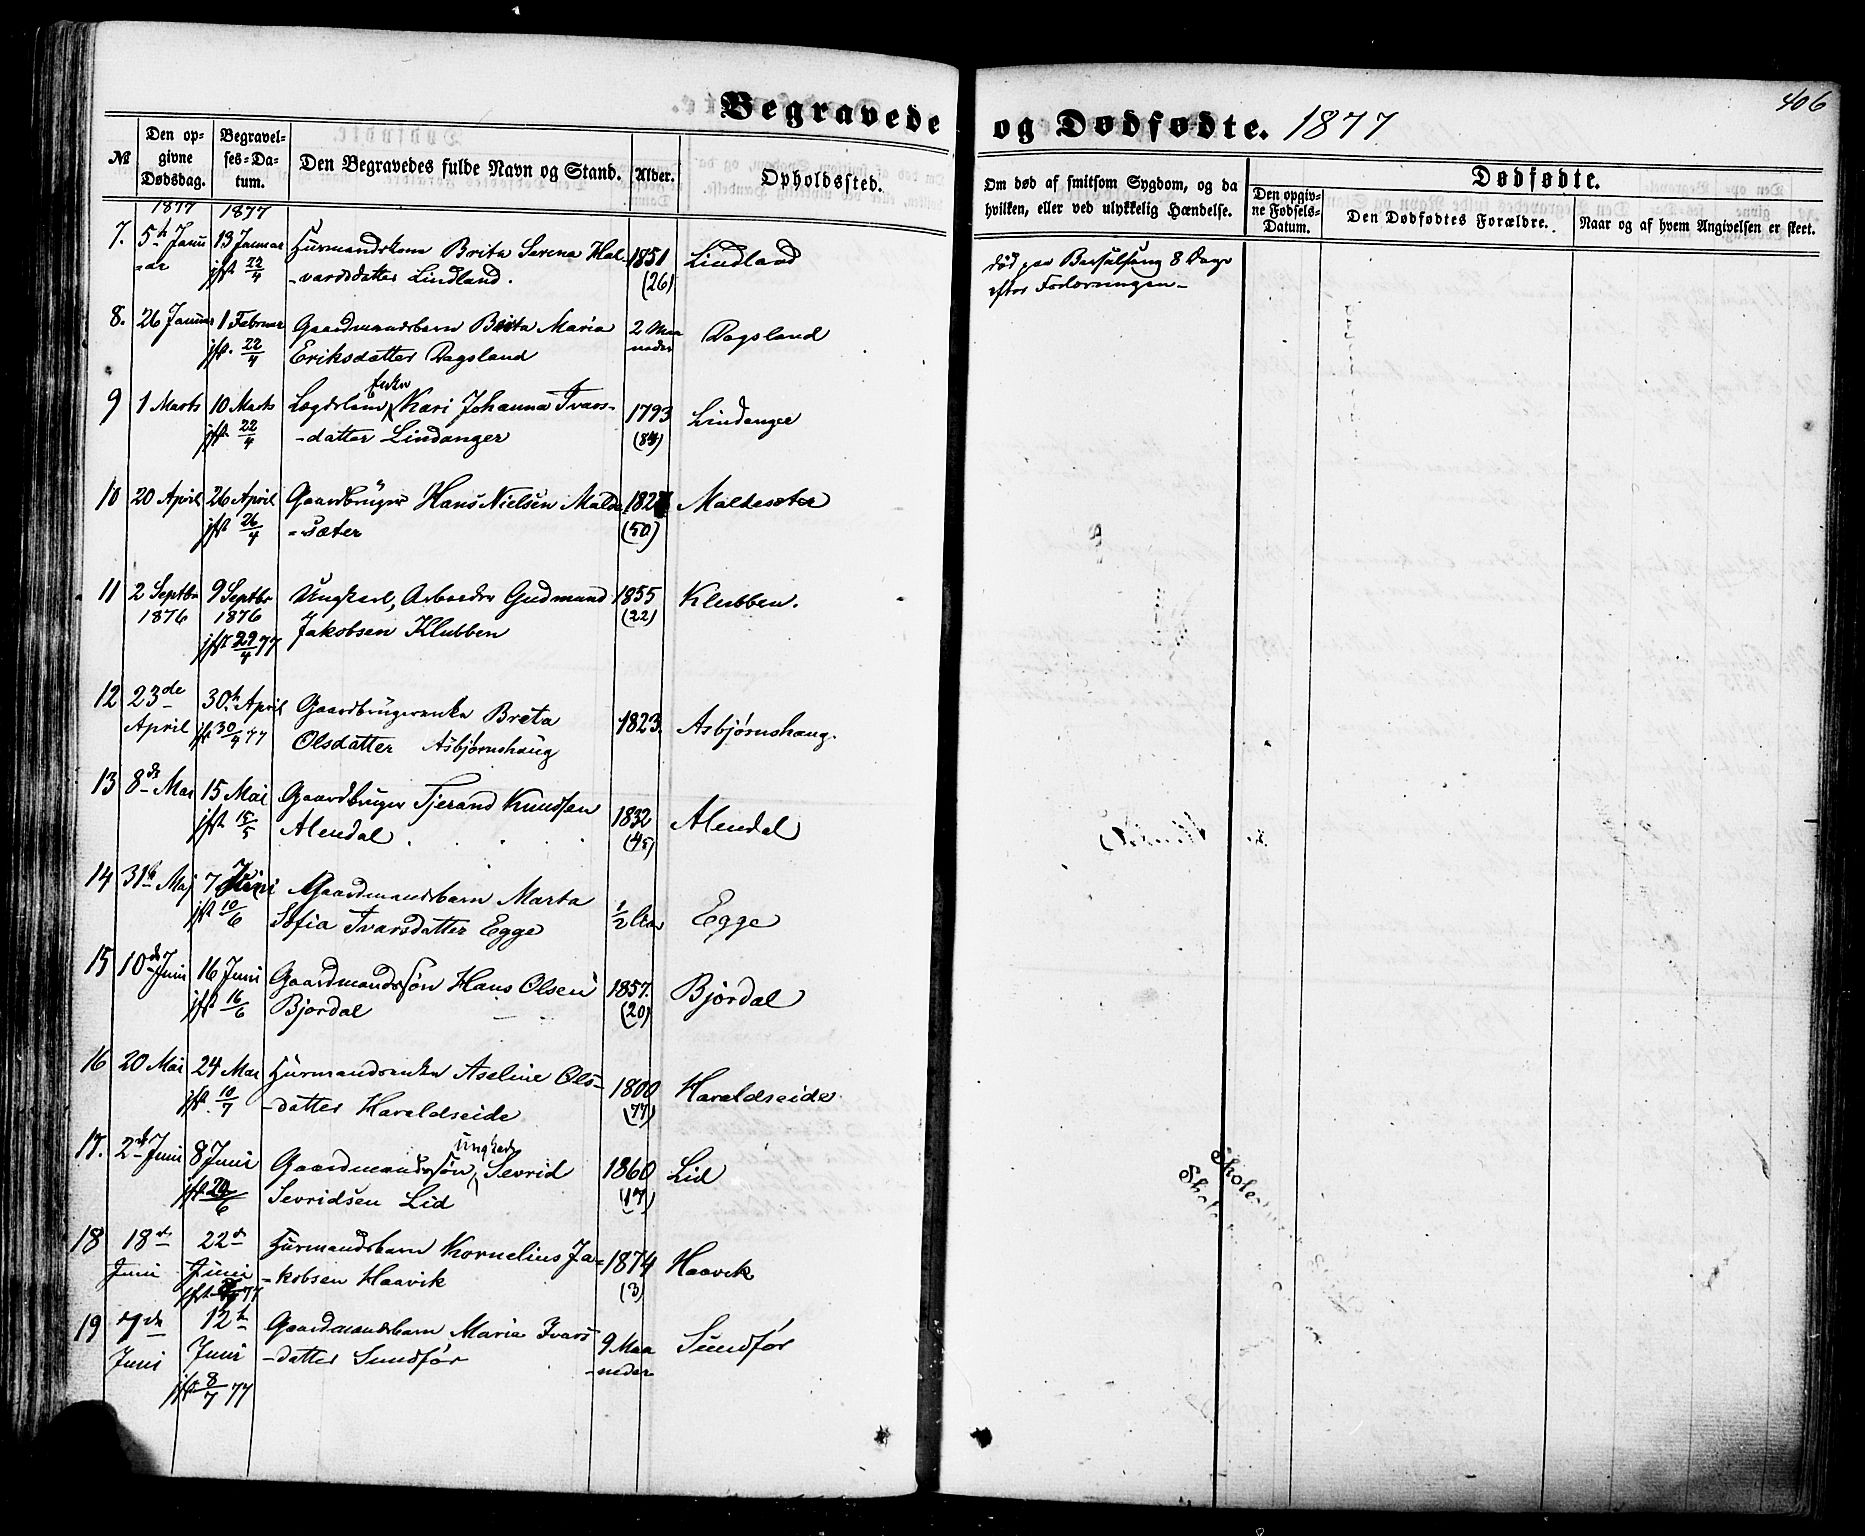 406
Begravede og Dødfødte. 1877
№
Den opgivne Dødsdag.
Begravelses-Datum.
Den Begravedes fulde Navn og Stand.
Alder.
Opholdssted.
Om død af smitsom Sygdom, og da hvilken, eller ved ulykkelig Hændelse.
Dødfødte.
Den opgivne Fødsels-Datum.
Den Dødfødtes Forældre.
Naar og af hvem Angivelsen er skeet.
1877 1877
7. 5te Janu 13 Januar Huusmandskone Brita Serena Hal- 1851 Lindland død paa Barselseng 8 Dage
-ar jfst 22/4 -vardsdatter Lindland. (26) efter Forløsningen-
8. 26 Januar 1 Februar Gaardmandsbarn Brita Maria 2 Maa Dagsland
jfst. 22/4 Eriksdatter Dagsland neder
enke
9 1 Marts 10 Marts Lægdslem Kari Johanna Ivars- 1793 Lindanger
jfst 22/4 -datter Lindanger (84)
10 20 April 26 April Gaardbruger Hans Nielsen Malde 1827 Maldesæter
jfst 26/4 -sæter (50)
11 2 Septbr 9 Septbr Ungkarl, Arbeider Gudmund 1855 Klubben.
1876 1876 Jakobsen Klubben (22)
jfst 29/4 77
12 23de 30te April Gaardbrugerenke Breta 1823. Asbjørnshaug.
April jfst 30/4 77 Olsdatter Asbjørnshaug
13 8de Mai 15 Mai Gaardbruger Tjerand Knudsen 1832 Alendal
jfst 15/5 Alendal (45)
14 31te Maj 7 Juni Gaardmandsbarn Marta
jfst 10/6 Sofia Ivarsdatter Egge 1/2 Aar Egge
15 10de Juni 16 Juni Gaardmandssøn Hans Olsen 1857. Bjørdal
jfst 16/6 Bjørdal (20)
16 20 Mai 24 Mai Huusmandsenke Aseline Ols- 1800 Haraldseide
jfst. 10/7 -datter Haraldseide (77)
ungkarl
17. 2de Juni 8 Juni Gaardmandssøn Sevrid 1860 Lid
jfst 20/6 Sevridsen Lid (17)
18 18de 22de Huusmandsbarn Kornelius Ja- 1874 Haavik
Juni Juni -kobsen Haavik (3)
jfst 77
19 7de 12te Gaardmandsbarn Maria Ivars 9 Maa Sundfør
Juni Juni -datter Sundfør -neder
jfst 8/7 77